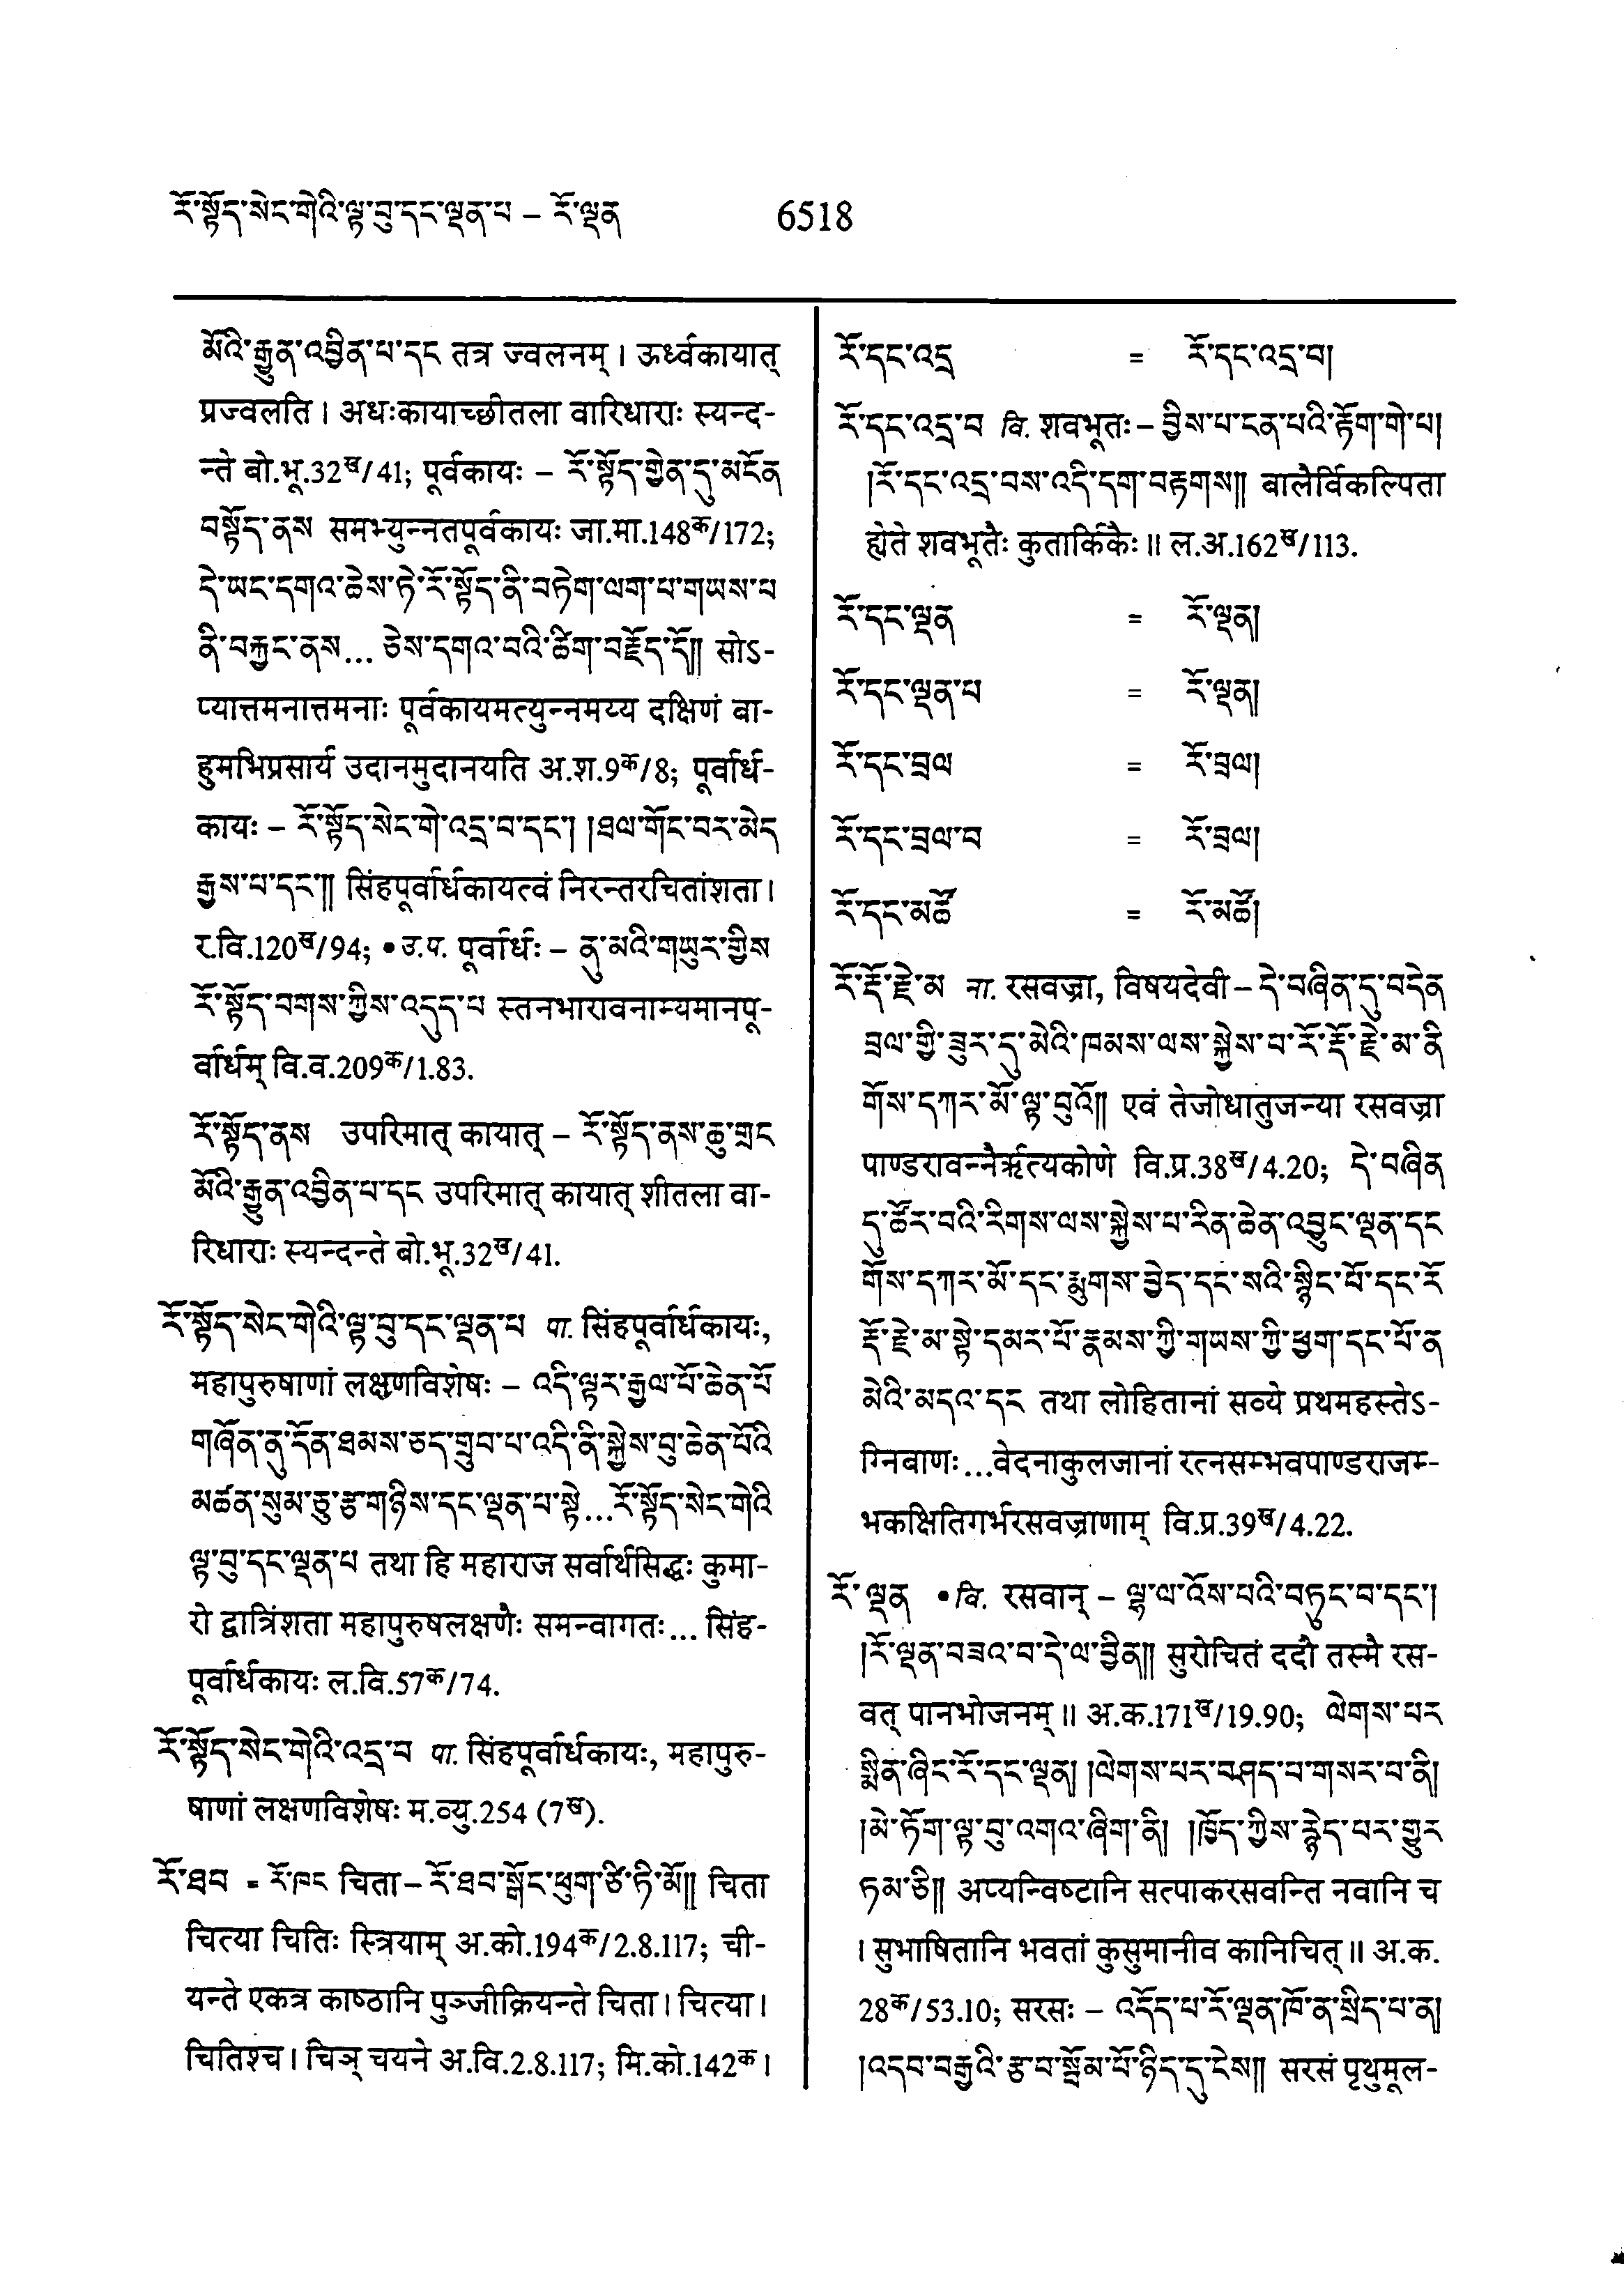 རོ་སྟོད་སེང་གེའི་ལྟ་བུ་དང་ལྡན་པ – རོ་ལྡན 6518
མོའི་རྒྱུན་འབྱིན་པ་དང तत्र ज्वलनम् । ऊर्ध्वकायात्
प्रज्वलति । अधःकायाच्छीतला वारिधाराः स्यन्द-
न्ते बो.भू.32ख/41; पूर्वकायः – རོ་སྟོད་གྱེན་དུ་མངོན
བསྟོད་ནས समभ्युन्नतपूर्वकायः जा.मा.148क/172;
དེ་ཡང་དགའ་ཆེས་ཏེ་རོ་སྟོད་ནི་བཏེག་ལག་པ་གཡས་པ
ནི་བརྐྱང་ནས... ཅེས་དགའ་བའི་ཚིག་བརྗོད་དོ།། सोऽ-
प्यात्तमनात्तमनाः पूर्वकायमत्युन्नमय्य दक्षिणं बा-
हुमभिप्रसार्य उदानमुदानयति अ.श.9क/8; पूर्वार्ध-
कायः – རོ་སྟོད་སེང་གེ་འདྲ་བ་དང་། །ཐལ་གོང་བར་མེད
རྒྱས་པ་དང་།། सिंहपूर्वार्धकायत्वं निरन्तरचितांशता ।
र.वि.120ख/94; • उ.प. पूर्वार्धः – ནུ་མའི་གཡུར་གྱིས
རོ་སྟོད་བགས་ཀྱིས་འདུད་པ स्तनभारावनाम्यमानपू-
र्वार्धम् वि.व.209क/1.83.
རོ་སྟོད་ནས उपरिमात् कायात् – རོ་སྟོད་ནས་ཆུ་གྲང
མོའི་རྒྱུན་འབྱིན་པ་དང उपरिमात् कायात् शीतला वा-
रिधाराः स्यन्दन्ते बो.भू.32ख/41.
རོ་སྟོད་སེང་གེའི་ལྟ་བུ་དང་ལྡན་པ पा. सिंहपूर्वार्धकायः,
महापुरुषाणां लक्षणविशेषः – འདི་ལྟར་རྒྱལ་པོ་ཆེན་པོ
གཞོན་ནུ་དོན་ཐམས་ཅད་གྲུབ་པ་འདི་ནི་སྐྱེས་བུ་ཆེན་པོའི
མཚན་སུམ་ཅུ་རྩ་གཉིས་དང་ལྡན་པ་སྟེ...རོ་སྟོད་སེང་གེའི
ལྟ་བུ་དང་ལྡན་པ तथा हि महाराज सर्वार्थसिद्धः कुमा-
रो द्वात्रिंशता महापुरुषलक्षणैः समन्वागतः... सिंह-
पूर्वार्धकायः ल.वि.57क/74.
རོ་སྟོད་སེང་གེའི་འདྲ་བ पा. सिंहपूर्वार्धकायः, महापुरु-
षाणां लक्षणविशेषः म.व्यु.254 (7ख).
རོ་ཐབ = རོ་ཁང चिता – རོ་ཐབ་སྒོང་ཕུག་ཙི་ཏི་མོ།། चिता
चित्या चितिः स्त्रियाम् अ.को.194क/2.8.117; ची-
यन्ते एकत्र काष्ठानि पुञ्जीक्रियन्ते चिता । चित्या ।
चितिश्च । चिञ् चयने अ.वि.2.8.117; मि.को.142क ।
རོ་དང་འདྲ = རོ་དང་འདྲ་བ།
རོ་དང་འདྲ་བ वि. शवभूतः – བྱིས་པ་ངན་པའི་རྟོག་གེ་པ།
།རོ་དང་འདྲ་བས་འདི་དག་བརྟགས།། बालैर्विकल्पिता
ह्येते शवभूतैः कुतार्किकैः ॥ ल.अ.162ख/113.
རོ་དང་ལྡན = རོ་ལྡན།
རོ་དང་ལྡན་པ = རོ་ལྡན།
རོ་དང་བྲལ = རོ་བྲལ།
རོ་དང་བྲལ་བ = རོ་བྲལ།
རོ་དང་མཚོ = རོ་མཚོ།
རོ་རྡོ་རྗེ་མ ना. रसवज्रा, विषयदेवी – དེ་བཞིན་དུ་བདེན
བྲལ་གྱི་ཟུར་དུ་མེའི་ཁམས་ལས་སྐྱེས་པ་རོ་རྡོ་རྗེ་མ་ནི
གོས་དཀར་མོ་ལྟ་བུའོ།། एवं तेजोधातुजन्या रसवज्रा
पाण्डरावन्नैरृत्यकोणे वि.प्र.38ख/4.20; དེ་བཞིན
དུ་ཚོར་བའི་རིགས་ལས་སྐྱེས་པ་རིན་ཆེན་འབྱུང་ལྡན་དང
གོས་དཀར་མོ་དང་རྨུགས་བྱེད་དང་སའི་སྙིང་པོ་དང་རོ
རྡོ་རྗེ་མ་སྟེ་དམར་པོ་རྣམས་ཀྱི་གཡས་ཀྱི་ཕྱག་དང་པོ་ན
མེའི་མདའ་དང तथा लोहितानां सव्ये प्रथमहस्तेऽ-
ग्निबाणः...वेदनाकुलजानां रत्नसम्भवपाण्डराजम्-
भकक्षितिगर्भरसवज्राणाम् वि.प्र.39ख/4.22.
རོ་ལྡན • वि. रसवान् – ལྷ་ལ་འོས་པའི་བཏུང་བ་དང་།
།རོ་ལྡན་བཟའ་བ་དེ་ལ་བྱིན།། सुरोचितं ददौ तस्मै रस-
वत् पानभोजनम् ॥ अ.क.171ख/19.90; ལེགས་པར
སྨིན་ཞིང་རོ་དང་ལྡན། །ལེགས་པར་བཤད་པ་གསར་བ་ནི།
།མེ་ཏོག་ལྟ་བུ་འགའ་ཞིག་ནི། །ཁྱོད་ཀྱིས་རྙེད་པར་གྱུར
ཏམ་ཅི།། अप्यन्विष्टानि सत्पाकरसवन्ति नवानि च
। सुभाषितानि भवतां कुसुमानीव कानिचित् ॥ अ.क.
28क/53.10; सरसः – འདོད་པ་རོ་ལྡན་ཁོ་ན་སྲིད་པ་ན།
།འདབ་བརྒྱའི་རྩ་བ་སྦོམ་པོ་ཉིད་དུ་ངེས།། सरसं पृथुमूल-